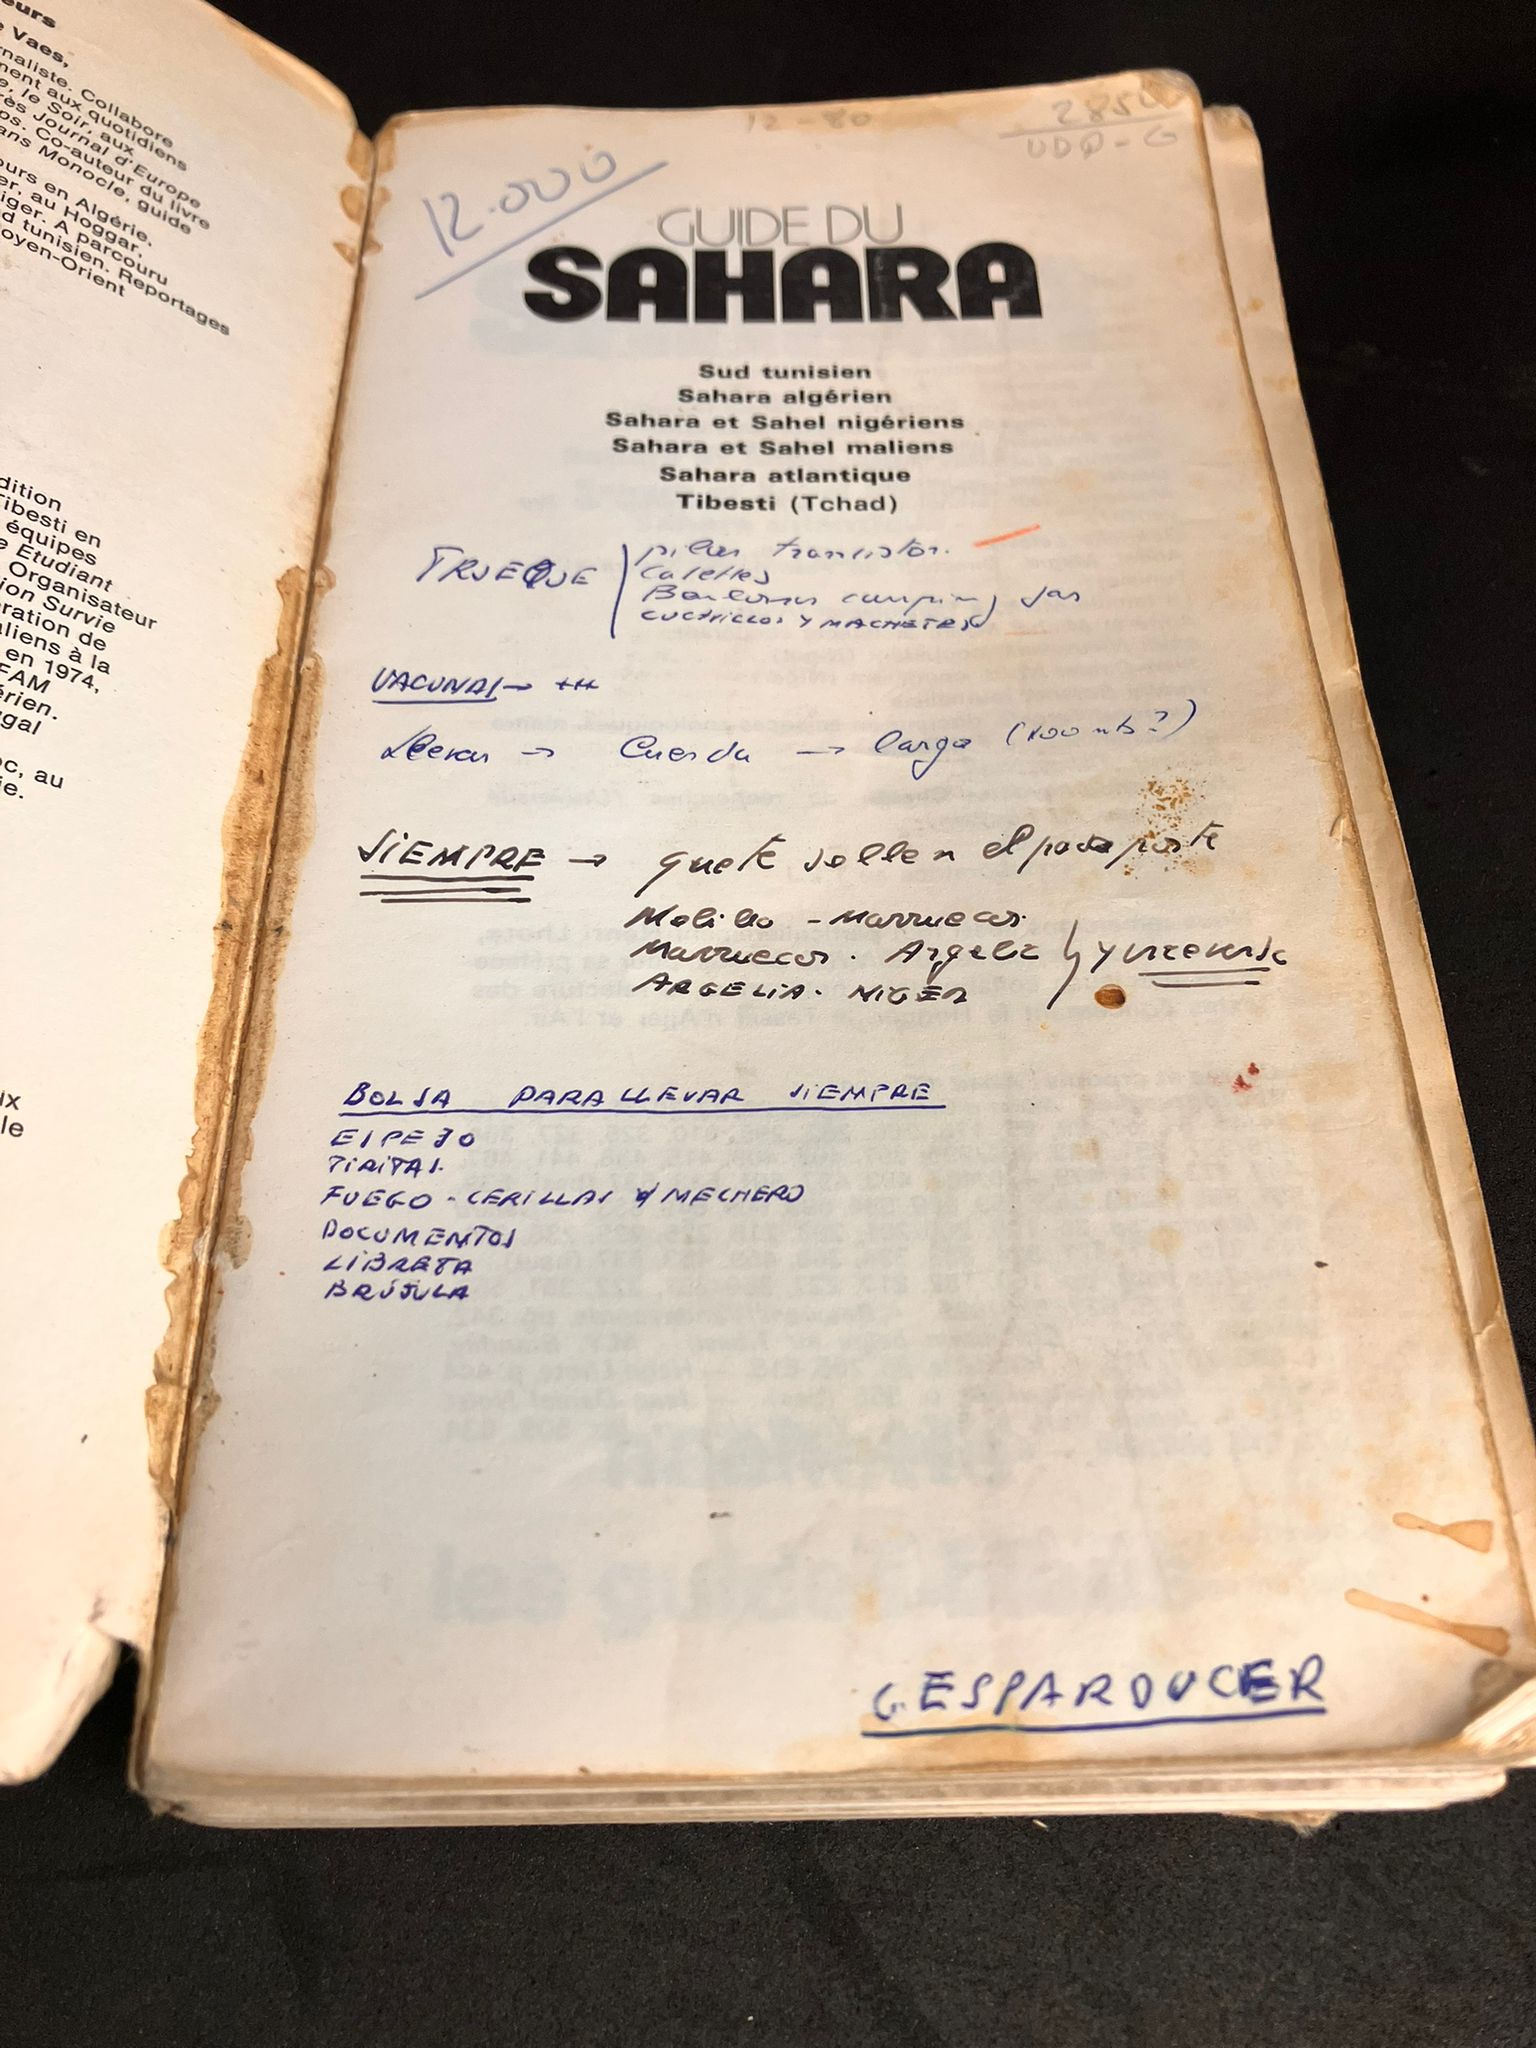 eurs
Vaes,
rnaliste. Collabore
ment aux quotidiens
e, le Soir, aux
rès Journal d'Europe
os. Co-auteur du livre
ans Monocle, guide
ours en Algérie,
er, au Hoggar,
iger. A parcouru
d tunisien. Reportages
oyen-Orient
dition
Tibesti en
équipes
e Etudiant
Organisateur
ion Survie
ration de
aliens à la
en 1974,
FAM
érien.
ugal
oc, au
ie.
ix
le
12-80
2850
UDQ-G
12.000
GUIDE DU
SAHARA
Sud tunisien
Sahara algérien
Sahara et Sahel nigériens
Sahara et Sahel maliens
Sahara atlantique
Tibesti (Tchad)
TRUEQUE
pilas transistor.
camping gas
CUCHILLOS Y MACHETES
VACUNAS → +++
Llevar → Cuerda → larga (100 mts?)
SIEMPRE → que te sellen el pasaporte
Melilla - Marruecos
Marruecos. Argelia y viceversa
ARGELIA. NIGER
BOLSA PARA LLEVAR SIEMPRE
ESPEJO
TIRITAS.
FUEGO - CERILLAS Y MECHERO
DOCUMENTOS
LIBRETA
BRÚJULA
G. ESPARDUCER